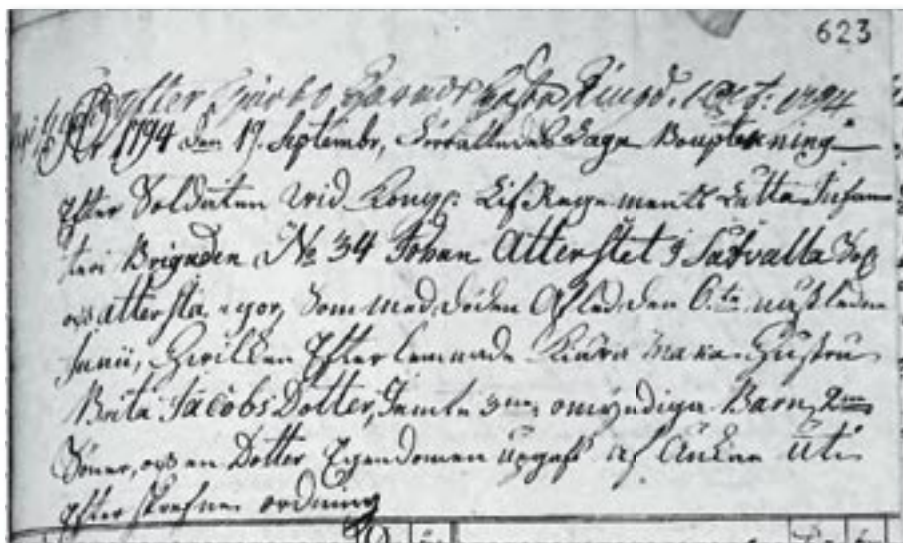 623
efter Giärbo Härads Ting d. 1 Oct: 1794
År 1794 den 19. Septembr, förrättades Laga Boupteckning
efter Soldaten wid Kongl: Lif Regements Lätta Infan
teri Brigaden No 34 Johan Atterstet i Sätralla
och attersta, som med döden Afled den 6.te nästleden
Junii, hwilken efter lemnade kiära maka Hustru
Brita Jacobs Dotter, samt 3ne omyndiga Barn, 2ne
Söner, och en Dotter Egendomen upgafs af Änkan uti
efter skrefne ordning